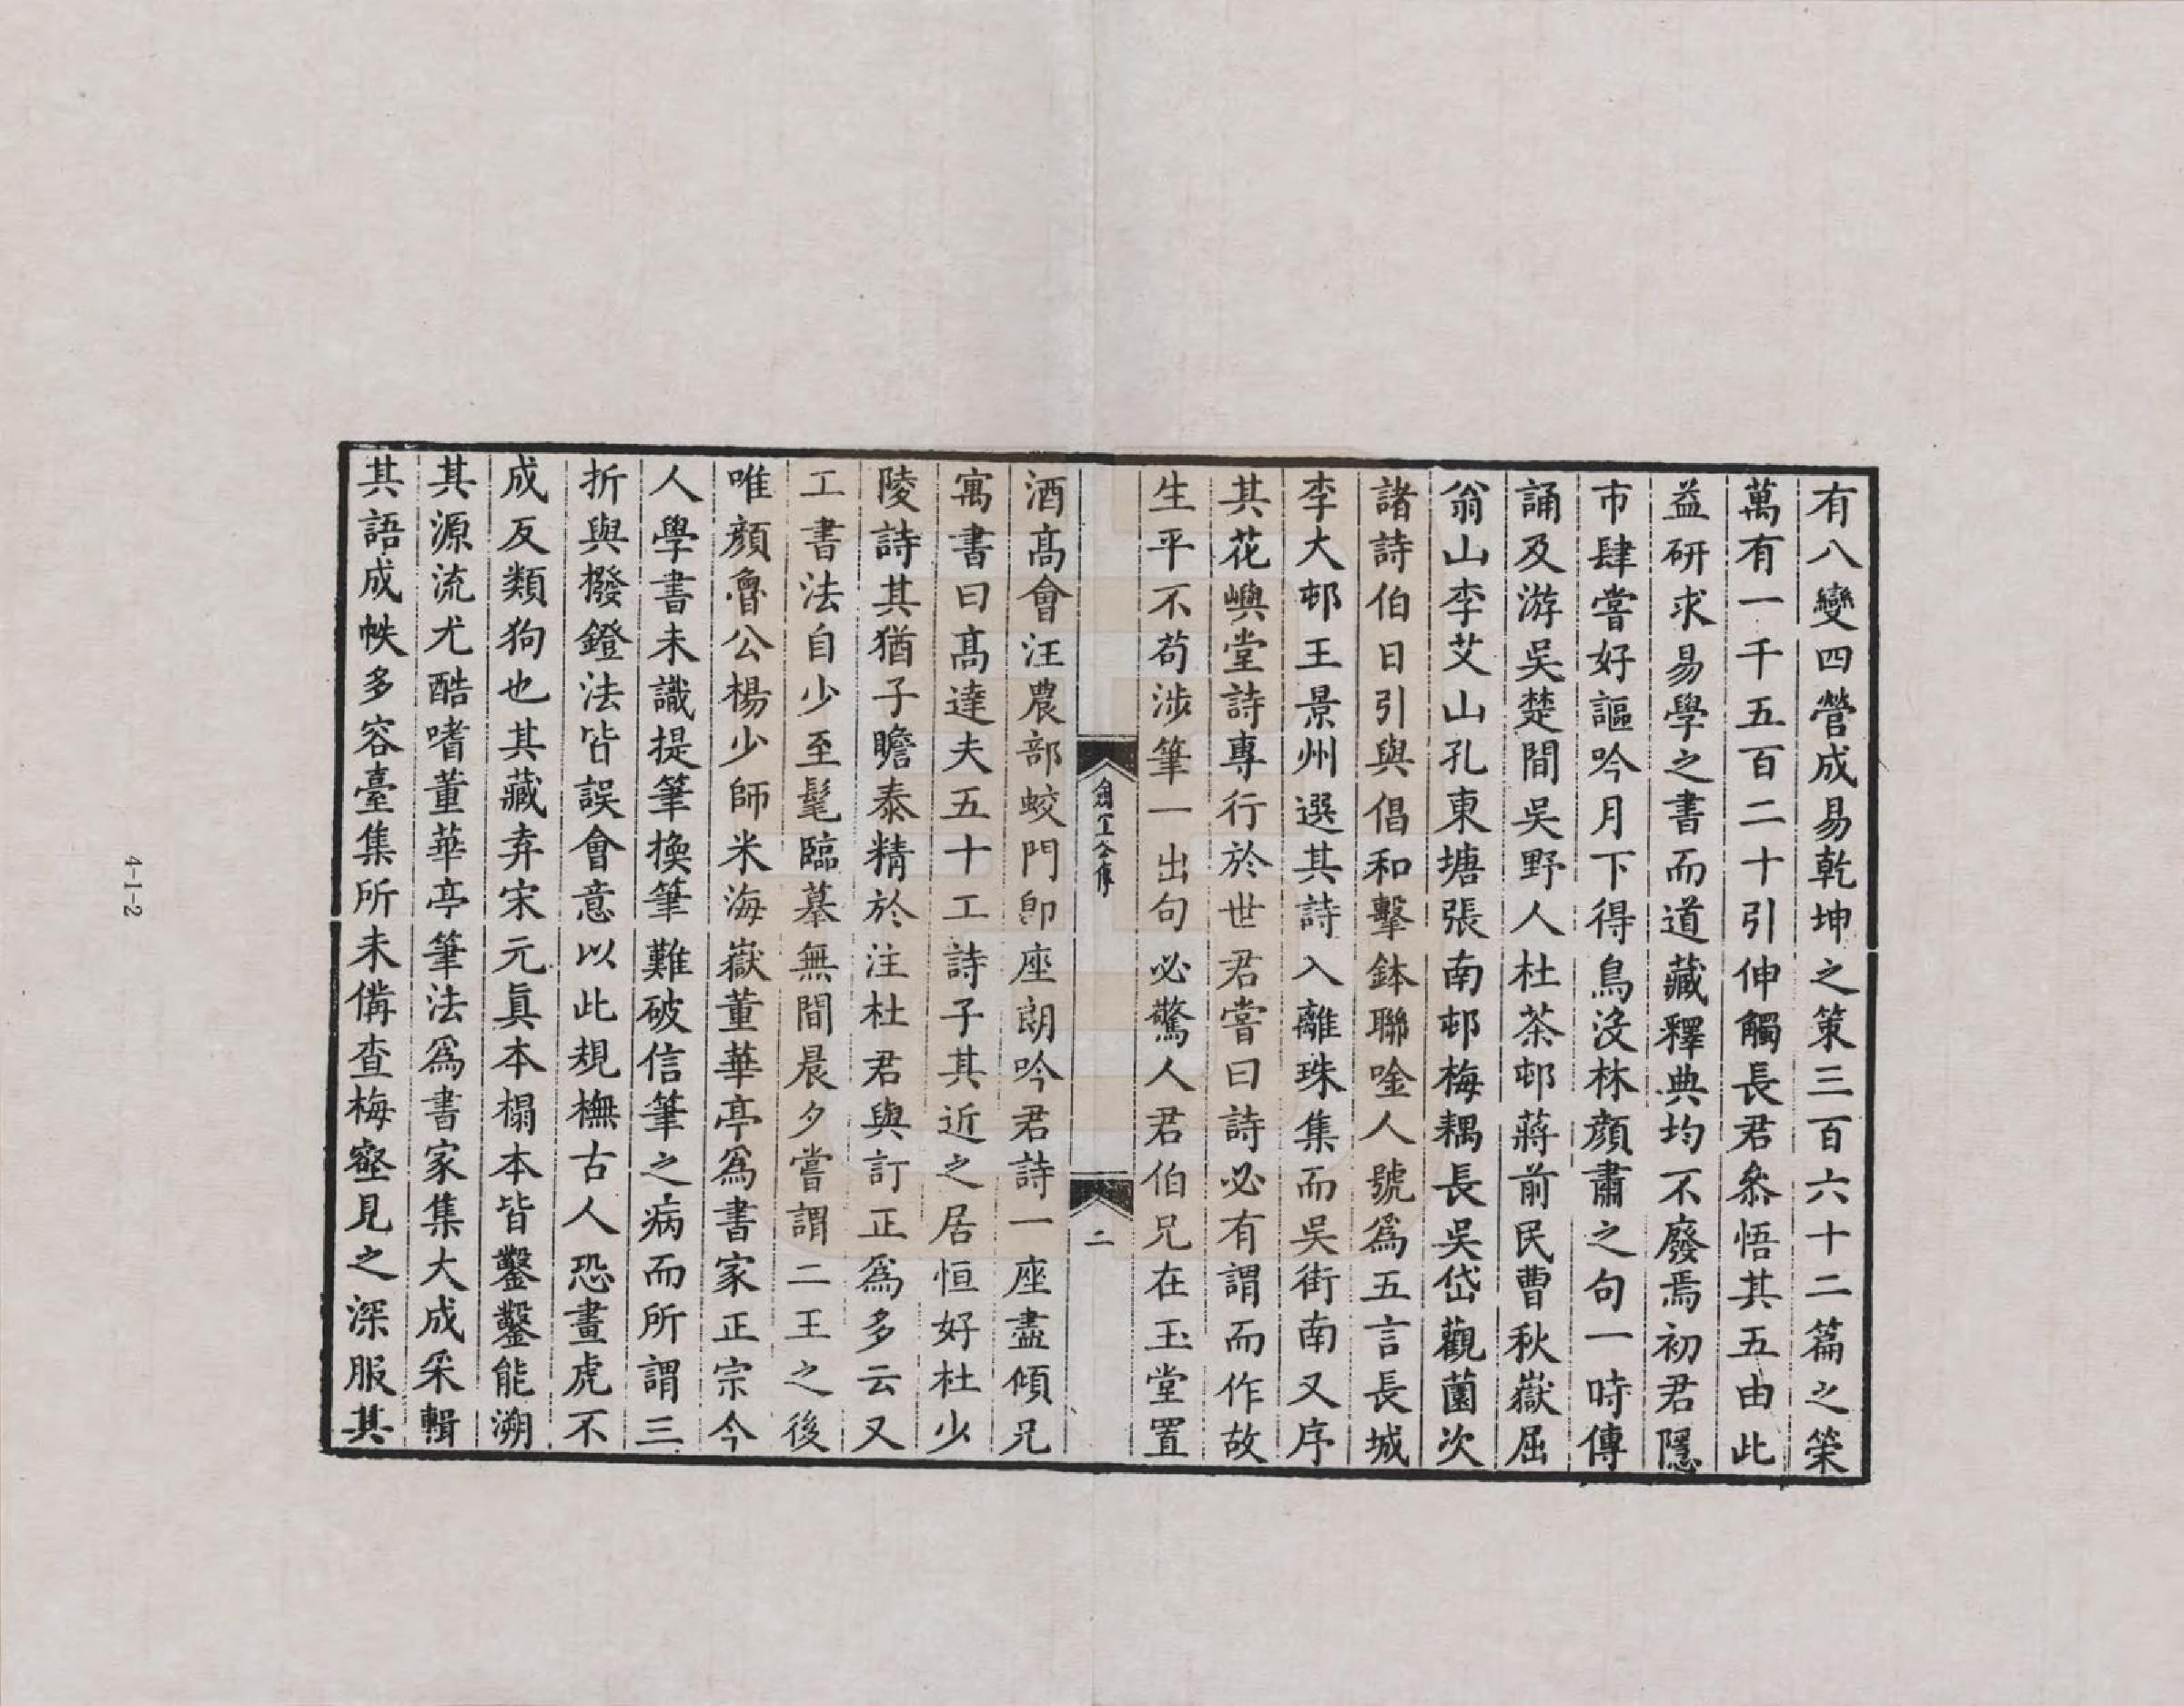 有八變四營成易乾坤之策三百六十二篇之策
萬有一千五百二十引伸觸長君叅悟其五由此
益研求易學之書而道藏釋典均不廢焉初君隱
市肆嘗好謳吟月下得鳥没林顔肅之句一時傳
誦及游吳楚間吳野人杜茶邨蔣前民曹秋嶽屈
翁山李艾山孔東塘張南邨梅耦長吳岱觀薗次
諸詩伯日引與倡和擊鉢聯唫人號爲五言長城
李大邨王景州選其詩入離珠集而吳街南又序
其花嶼堂詩專行於世君嘗曰詩必有謂而作故
生平不苟涉筆一出句必驚人君伯兄在玉堂置
二
酒髙會汪農部蛟門卽座朗吟君詩一座盡傾兄
寓書曰髙達夫五十工詩子其近之居恒好杜少
陵詩其猶子瞻泰精於注杜君與訂正爲多云又
工書法自少至髦臨摹無間晨夕嘗謂二王之後
唯顔魯公楊少師米海嶽董華亭爲書家正宗今
人學書未識提筆換筆難破信筆之病而所謂三
折與撥鐙法皆誤會意以此規橅古人恐畫虎不
成反類狗也其藏弆宋元眞本榻本皆鑿鑿能溯
其源流尤酷嗜董華亭筆法爲書家集大成采輯
其語成帙多容臺集所未備查梅壑見之深服其
4-1-2